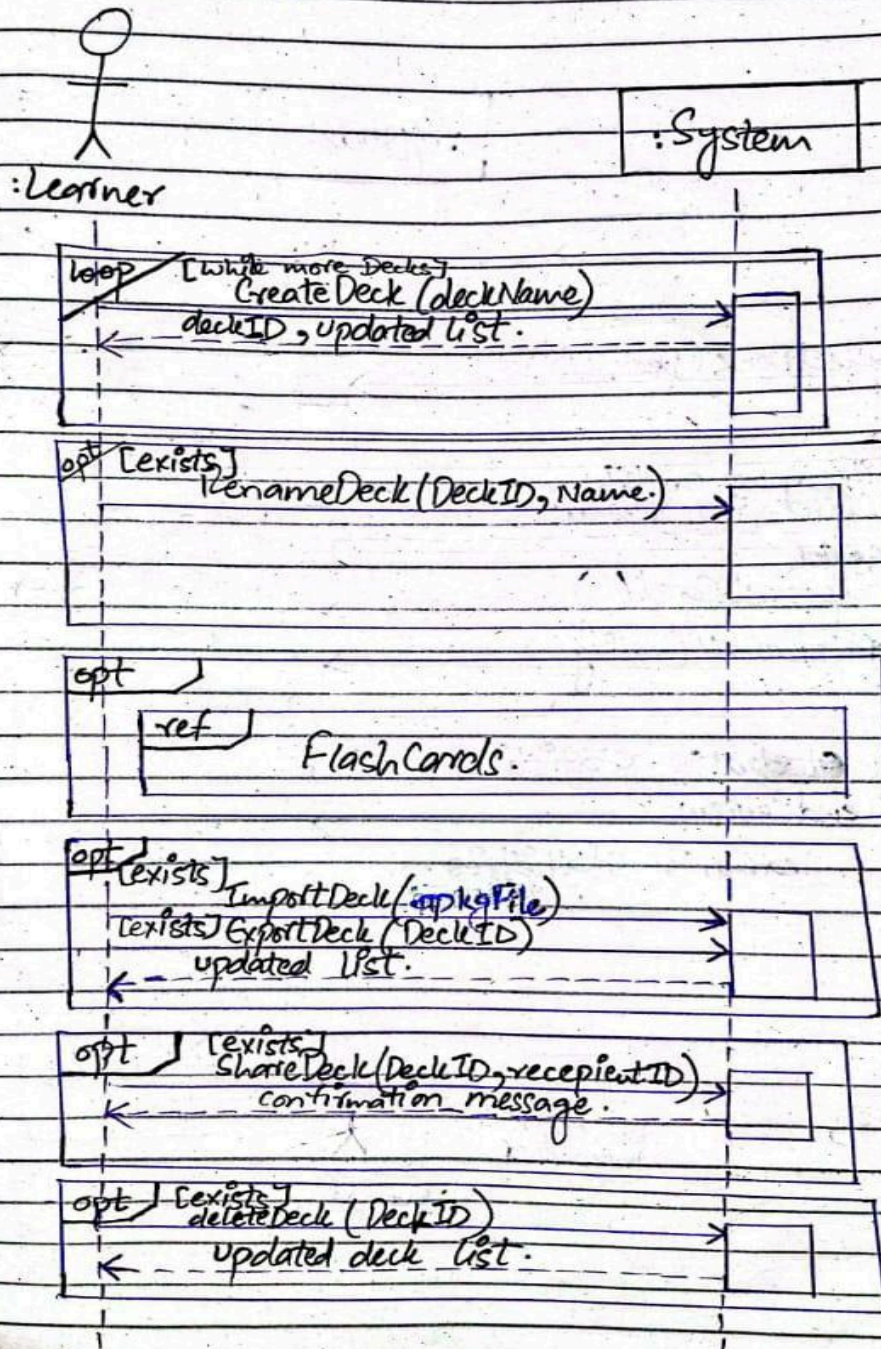 :System
:Learner
loop [while more Decks]
CreateDeck (deckName)
deckID, updated list.
opt [exists]
RenameDeck (DeckID, Name.)
opt
ref
FlashCards.
opt
[exists]
ImportDeck (apkgFile)
[exists] ExportDeck (DeckID)
updated list.
opt [exists]
ShareDeck (DeckID, recepientID)
confirmation message.
opt [exists]
deleteDeck (DeckID)
updated deck list.